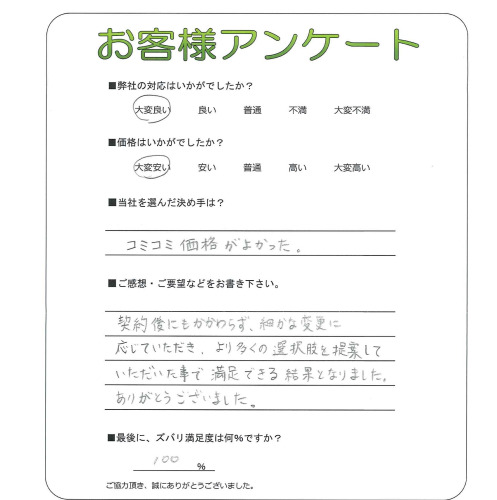 お客様アンケート
■弊社の対応はいかがでしたか？
大変良い 良い 普通 不満 大変不満
■価格はいかがでしたか？
大変安い 安い 普通 高い 大変高い
■当社を選んだ決め手は？
コミコミ価格がよかった。
■ご感想・ご要望などをお書き下さい。
契約後にもかかわらず、細かな変更に
応じていただき、より多くの選択肢を提案して
いただいた事で満足できる結果となりました。
ありがとうございました。
■最後に、ズバリ満足度は何％ですか？
100 ％
ご協力頂き、誠にありがとうございました。